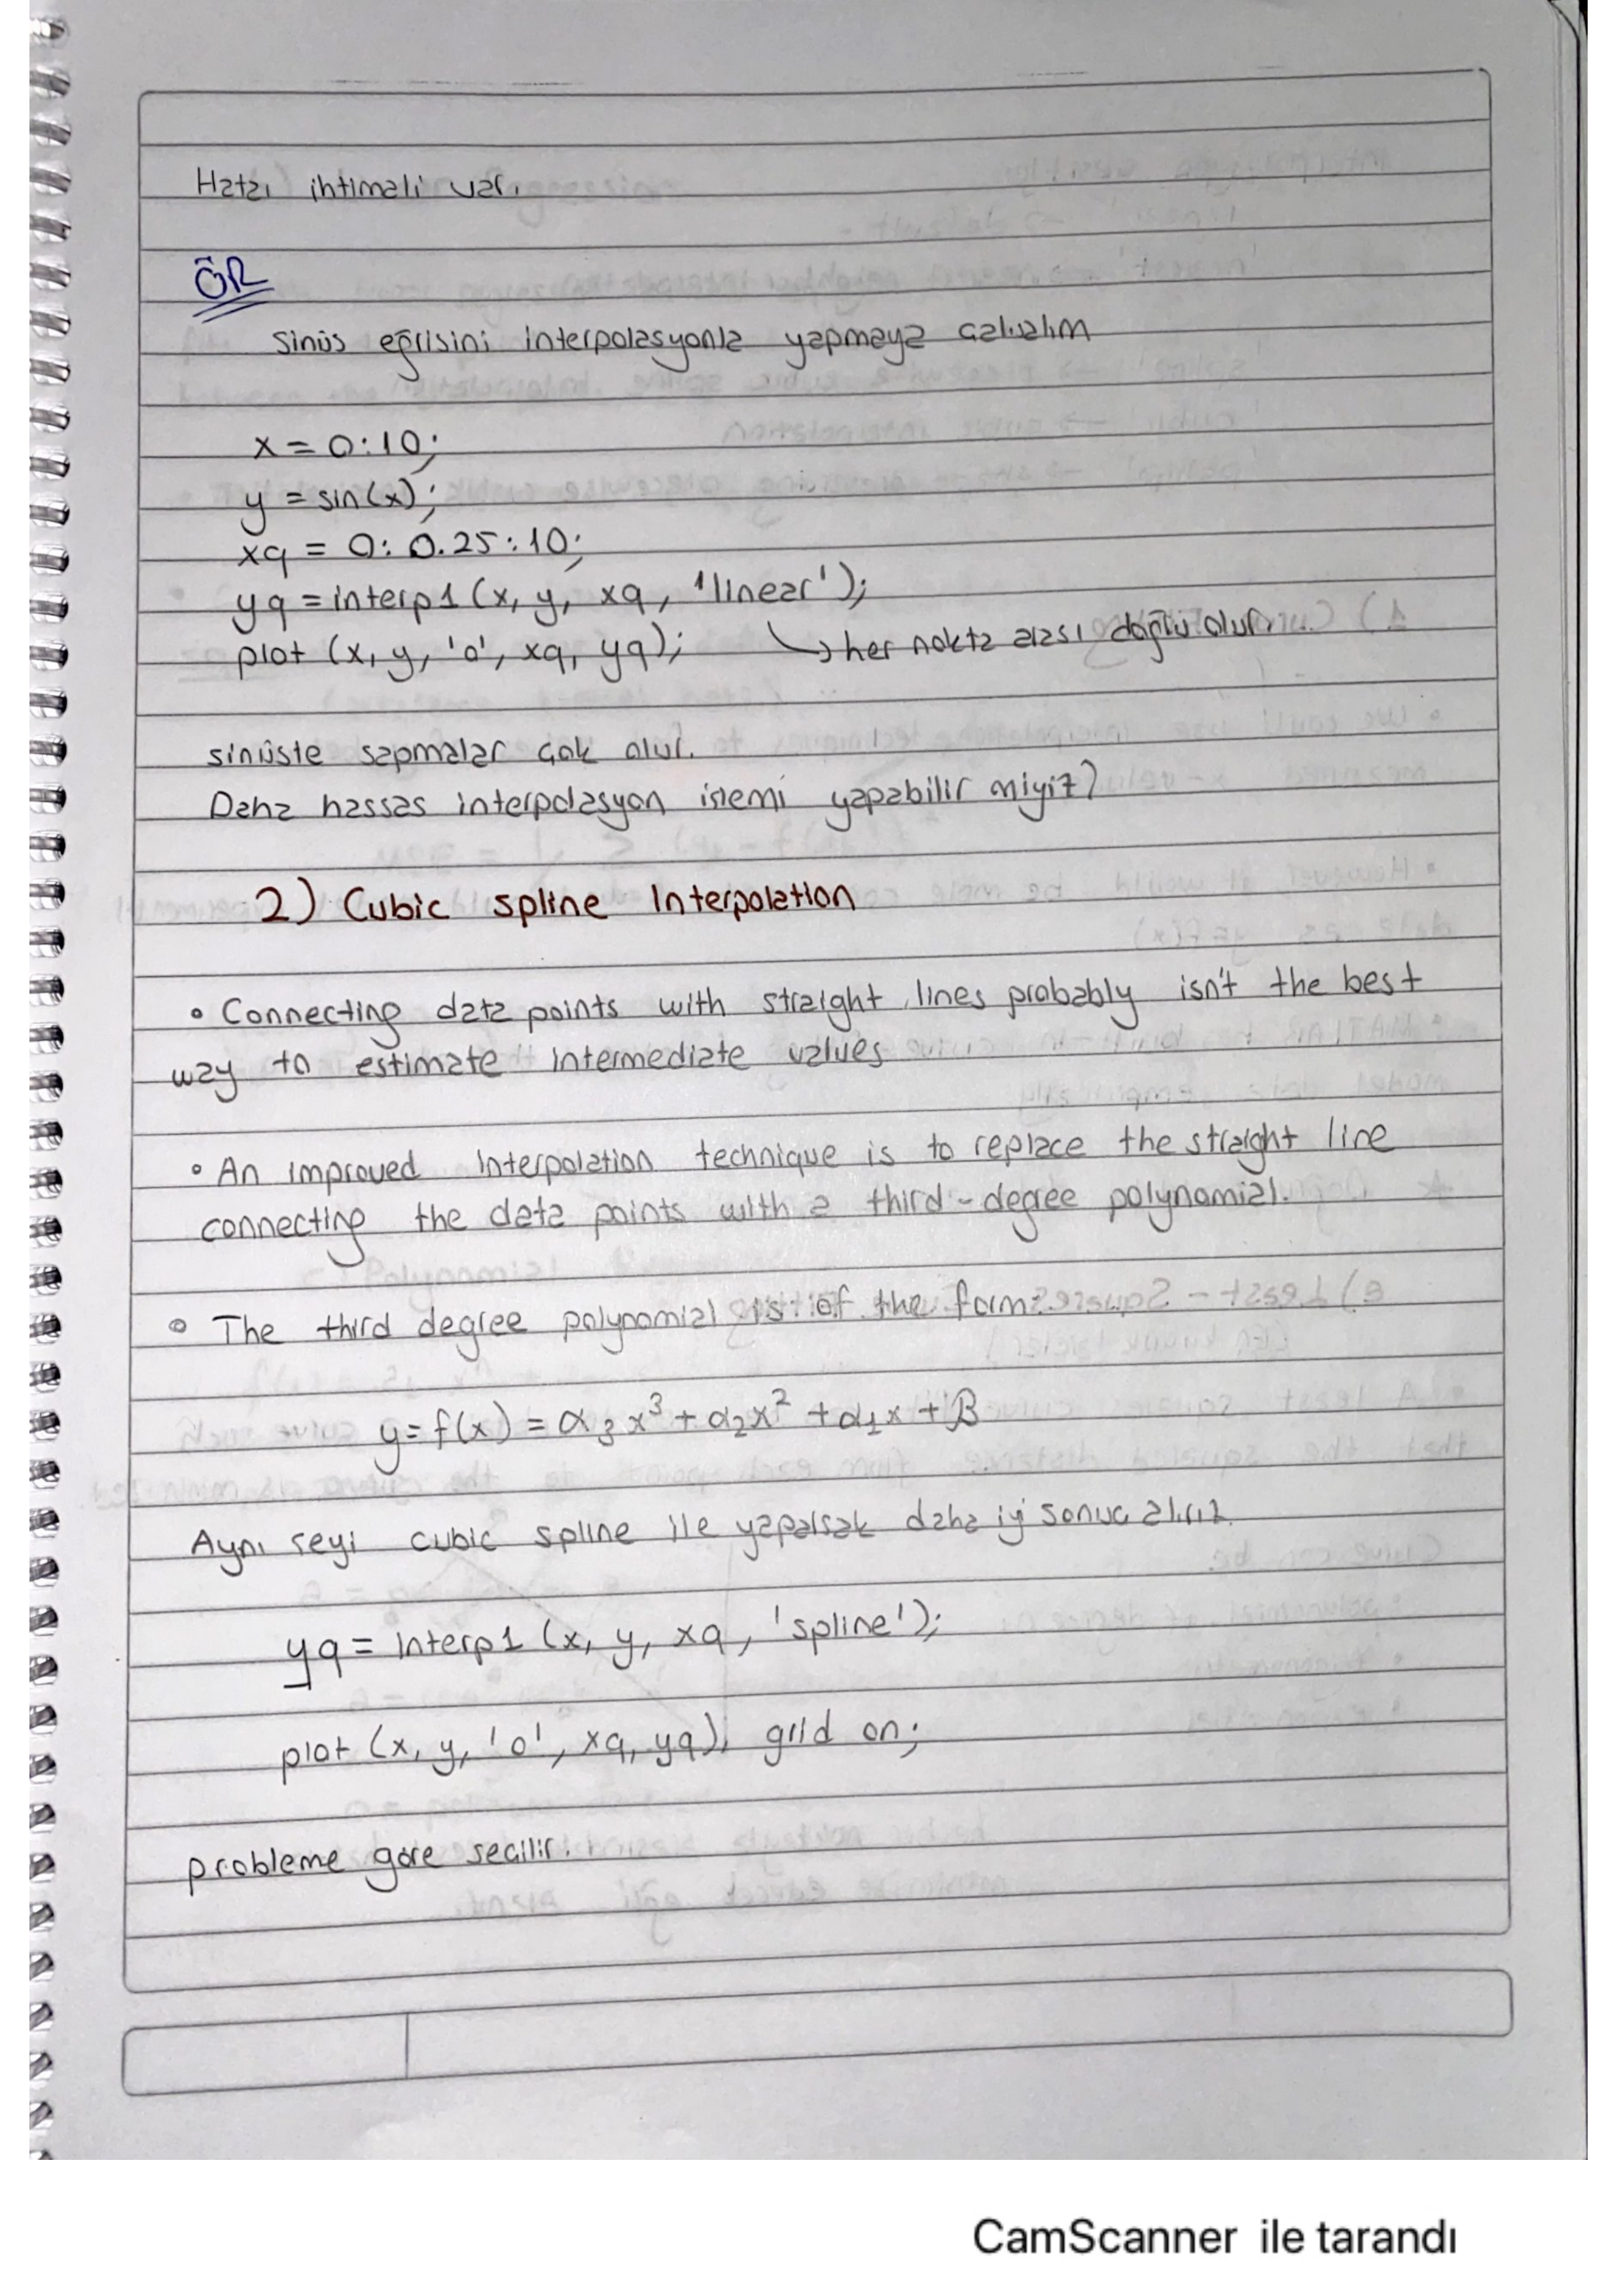 Hata ihtimali var.
ÖR
sinüs eğrisini interpolasyonla yapmaya çalışalım
x = 0:10;
y = sin(x);
xq = 0: 0.25:10;
yq = interp1 (x, y, xq, 'linear');
plot (x, y, 'o', xq, yq); ↳ her nokta arası doğru olur.
sinüste sapmalar çok olur.
Daha hassas interpolasyon islemi yapabilir miyiz?
2) Cubic spline Interpolation
• Connecting data points with straight lines probably isn't the best
way to estimate intermediate values
• An improved interpolation technique is to replace the straight line
connecting the data points with a third-degree polynomial.
• The third degree polynomial is of the form:
y = f(x) = α₃x³ + α₂x² + α₁x + β
Aynı seyi cubic spline ile yaparsak daha iyi sonuc alırız.
yq = interp1 (x, y, xq, 'spline');
plot (x, y, 'o', xq, yq), grid on;
probleme göre secilir.
CamScanner ile tarandı